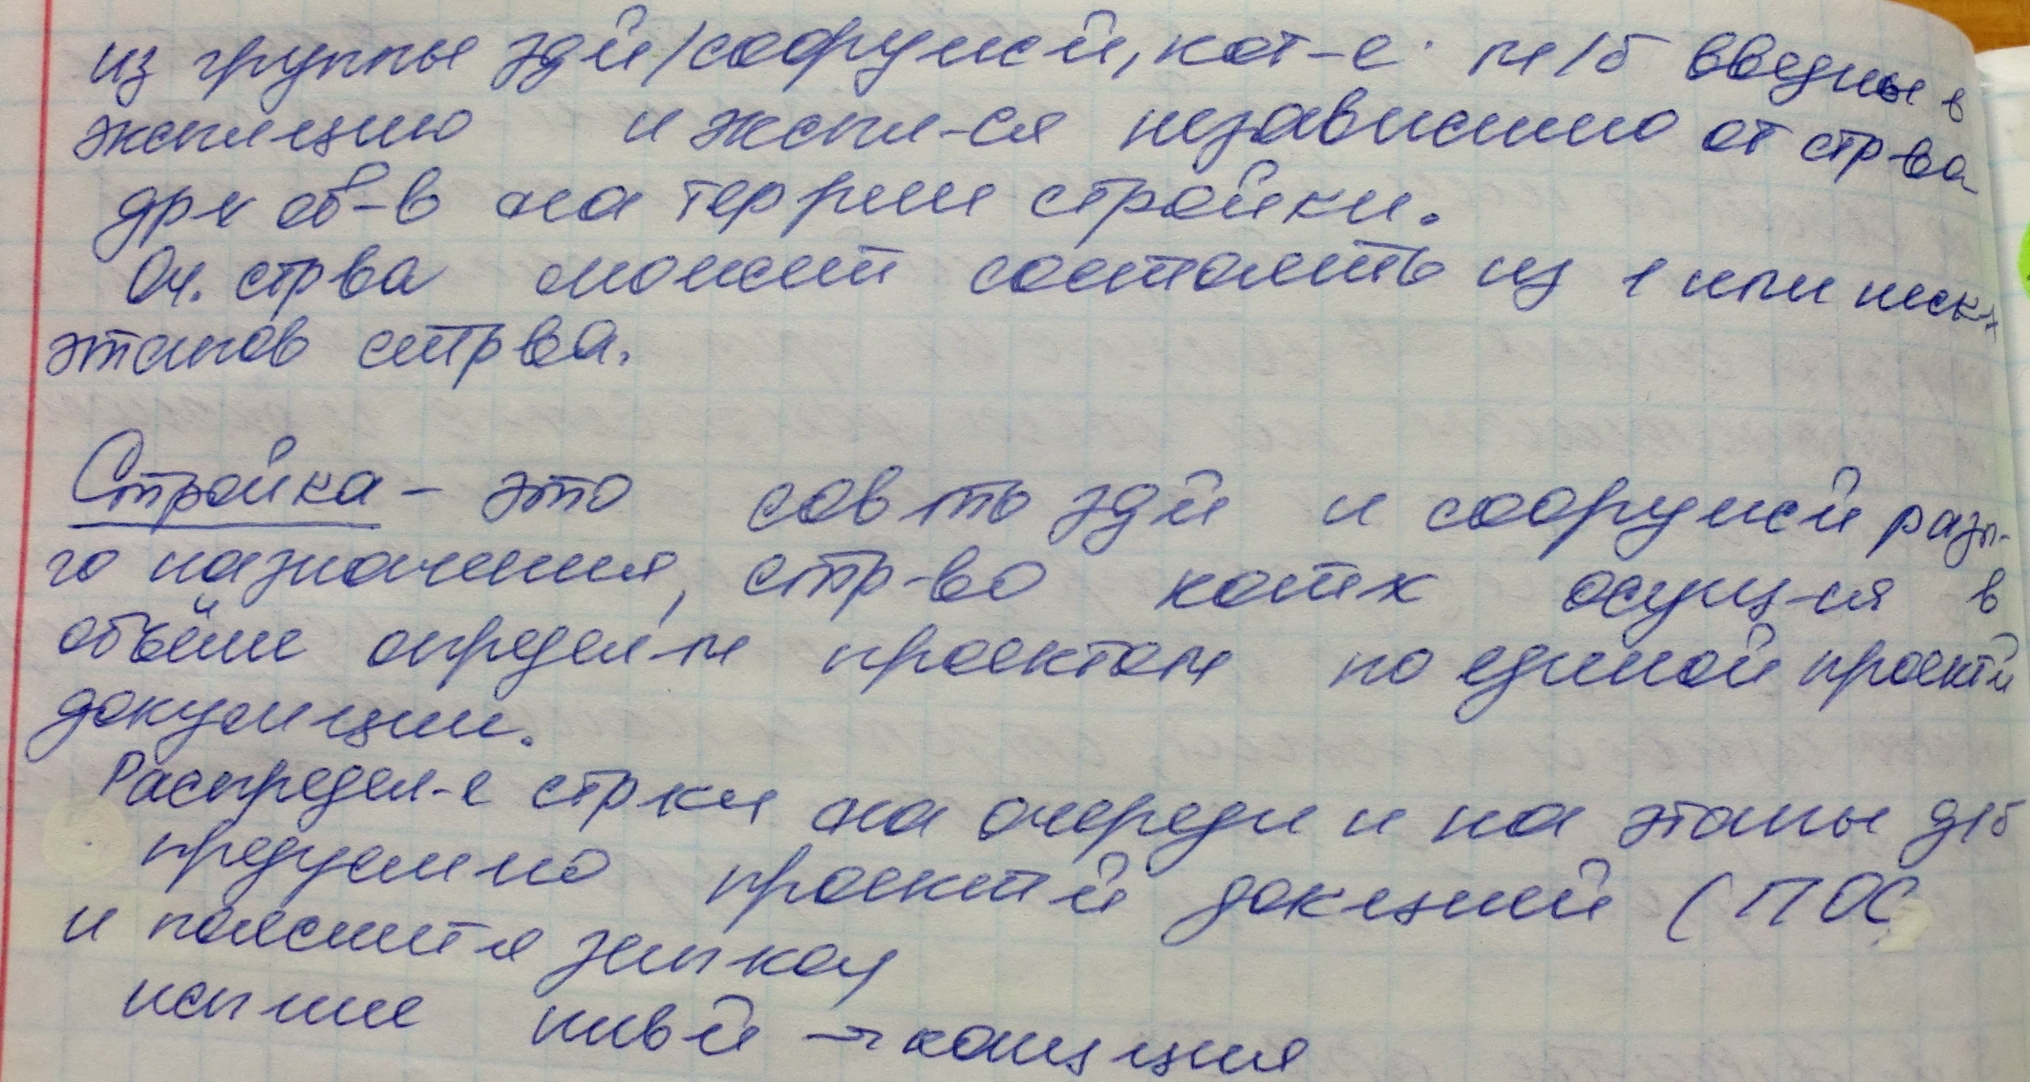 из группы здй/сооружй, кот-е м/б введны в
экспл цию и экспл-ся независимо от стр-ва
др х об-в на террии стройки.
Оч. стрва может состоять из 1 или неск х
этапов стрва.
Стройка - это сов ть здй и сооружй разл-
го назначения, стр-во котх осущ-ся в
объёме определ-м проектом по единой проектй
докумции.
Распредел-е стрки на очереди и на этапы д/б
предусмно проектй докцией (ПОС
и пояснитя запкой